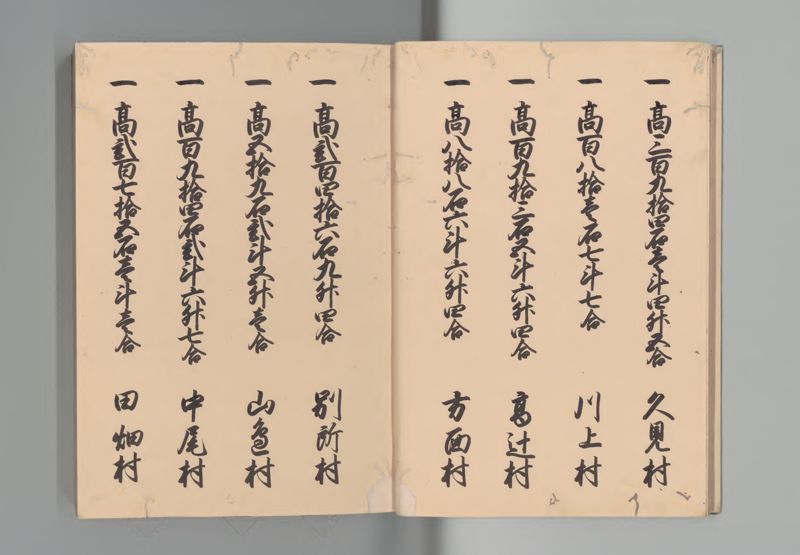 一 高三百九拾四石壱斗四升五合 久見村
一 高百八拾壱石七斗七合 川上村
一 高百九拾三石五斗六升四合 高辻村
一 高八拾八石六斗六升四合 方西村
一 高弐百四拾六石九升四合 別所村
一 高五拾九石弐斗五升壱合 山色村
一 高百九拾四石弐斗六升七合 中尾村
一 高弐百七拾五石壱斗壱合 田畑村